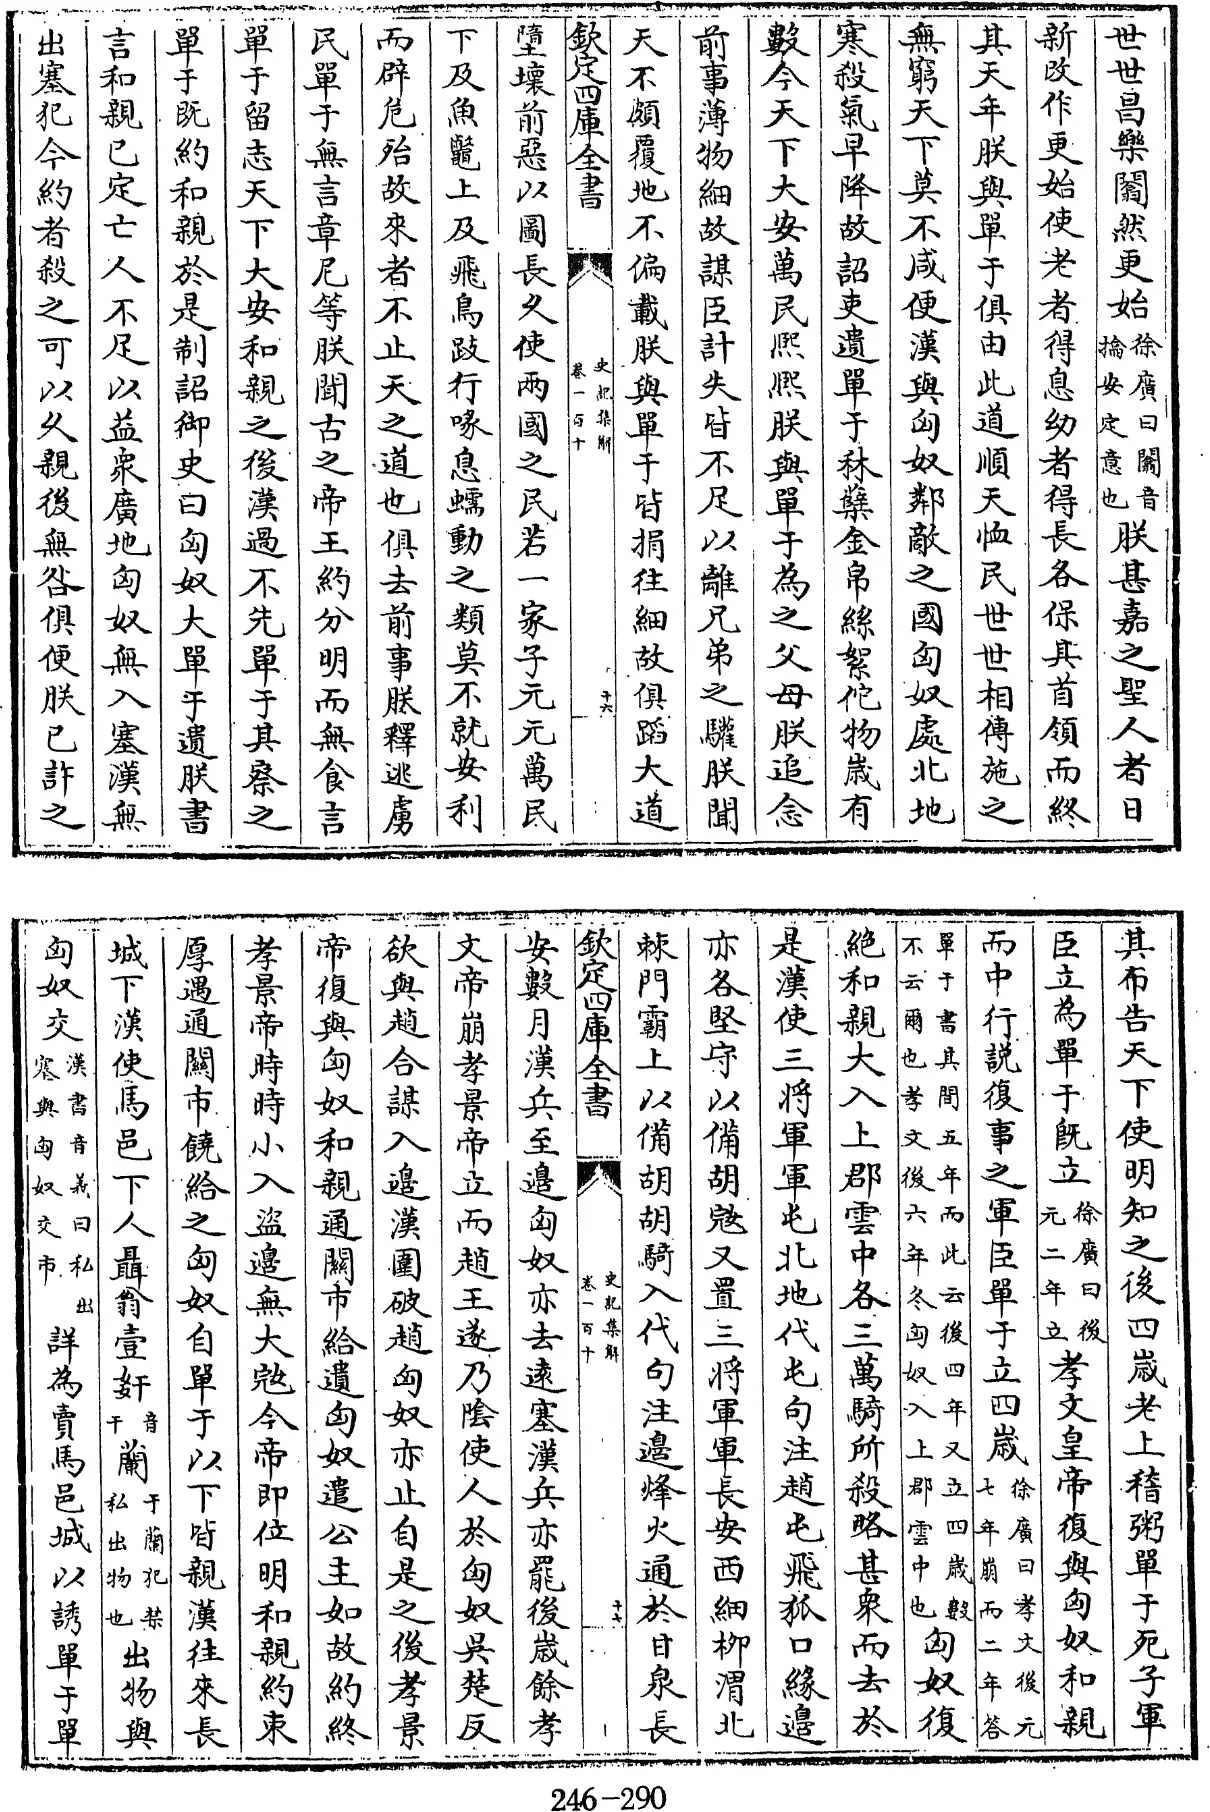 世世昌樂闟然更始徐廣曰闟音搶安定意也朕甚嘉之聖人者日
新改作更始使老者得息幼者得長各保其首領而終
其天年朕與單于俱由此道順天恤民世世相傳施之
無窮天下莫不咸便漢與匈奴鄰敵之國匈奴處北地
寒殺氣早降故詔吏遺單于秫糵金帛絲絮佗物歲有
數今天下大安萬民熙熙朕與單于為之父母朕追念
前事薄物細故謀臣計失皆不足以離兄弟之驩朕聞
天不頗覆地不偏載朕與單于皆捐往細故俱蹈大道
欽定四庫全書
史記集解
卷一百十
十六
墮壞前惡以圖長久使兩國之民若一家子元元萬民
下及魚鼈上及飛鳥跂行喙息蠕動之類莫不就安利
而辟危殆故來者不止天之道也俱去前事朕釋逃虜
民單于無言章尼等朕聞古之帝王約分明而無食言
單于留志天下大安和親之後漢過不先單于其察之
單于既約和親於是制詔御史曰匈奴大單于遺朕書
言和親已定亡人不足以益衆廣地匈奴無入塞漢無
出塞犯今約者殺之可以久親後無咎俱便朕已許之
其布告天下使明知之後四歲老上稽粥單于死子軍
臣立為單于既立徐廣曰後元二年立孝文皇帝復與匈奴和親
而中行説復事之軍臣單于立四歲徐廣曰孝文後元七年崩而二年答
單于書其間五年而此云後四年又立四歲數不云爾也孝文後六年冬匈奴入上郡雲中也匈奴復
絶和親大入上郡雲中各三萬騎所殺略甚衆而去於
是漢使三將軍軍屯北地代屯句注趙屯飛狐口緣邊
亦各堅守以備胡冦又置三將軍軍長安西細柳渭北
棘門霸上以備胡胡騎入代句注邊烽火通於甘泉長
欽定四庫全書
史記集解
卷一百十
十七
安數月漢兵至邊匈奴亦去逺塞漢兵亦罷後歲餘孝
文帝崩孝景帝立而趙王遂乃隂使人於匈奴吳楚反
欲與趙合謀入邊漢圍破趙匈奴亦止自是之後孝景
帝復與匈奴和親通關市給遺匈奴遣公主如故約終
孝景帝時時小入盜邊無大冦今帝即位明和親約束
厚遇通關市饒給之匈奴自單于以下皆親漢往來長
城下漢使馬邑下人聶翁壹奸音干蘭干蘭犯禁私出物也出物與
匈奴交漢書音義曰私出塞與匈奴交市詳為賣馬邑城以誘單于單
246-290